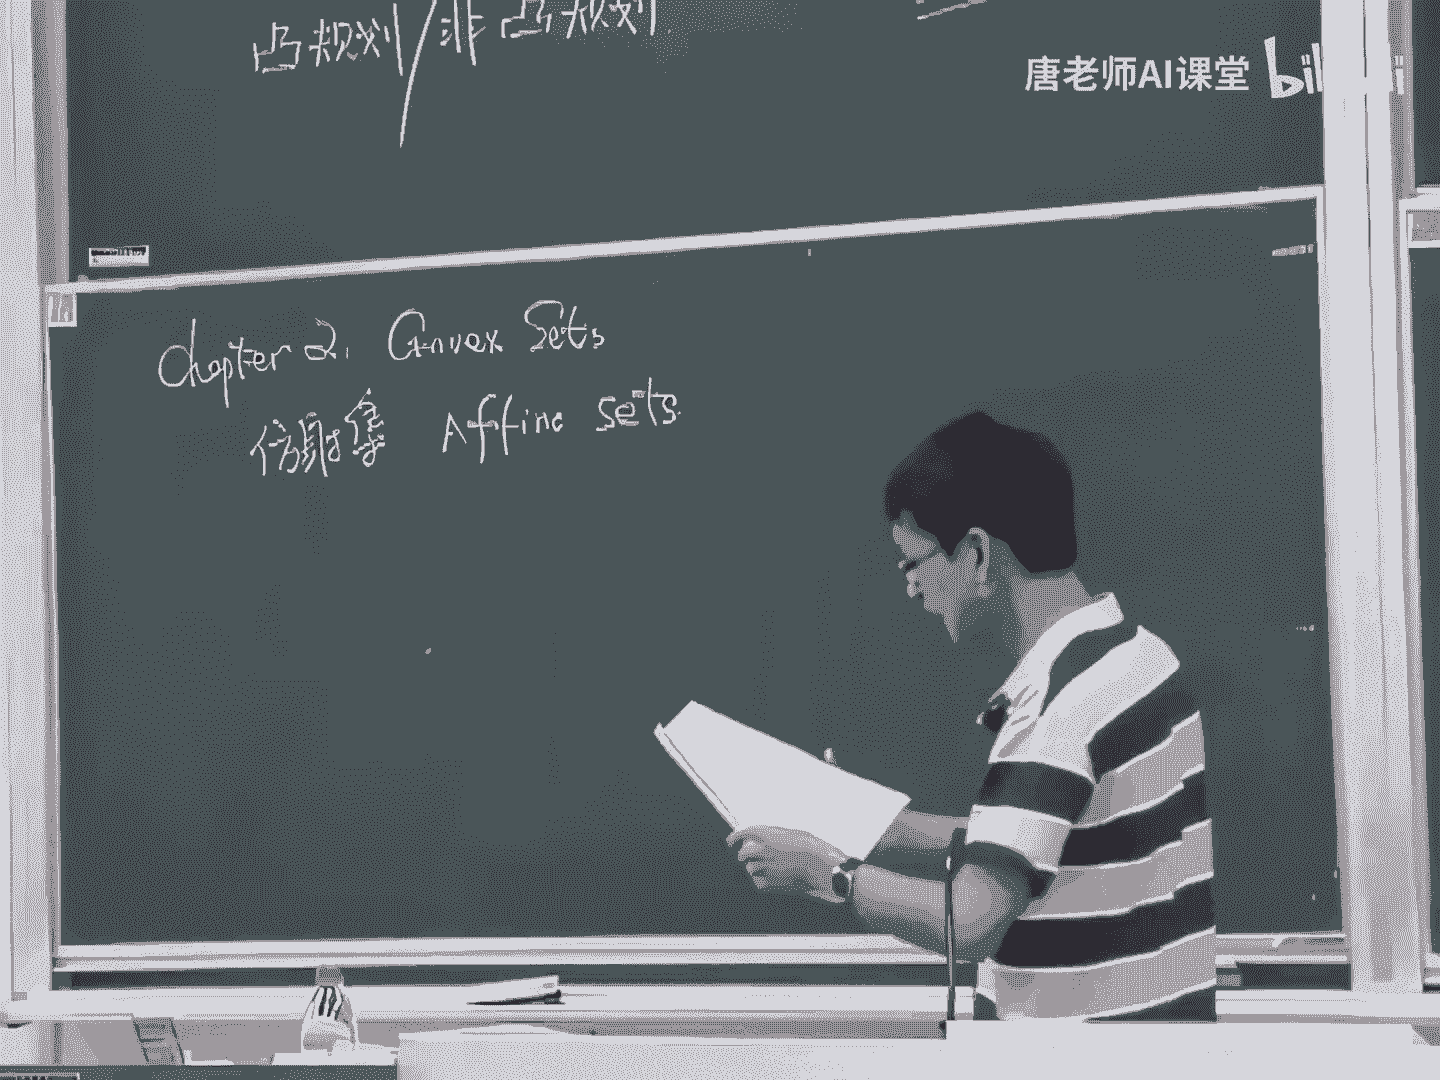 凸规划/非凸规划
唐老师AI课堂 bil
Chapter 2. Convex Sets
仿射集 Affine sets